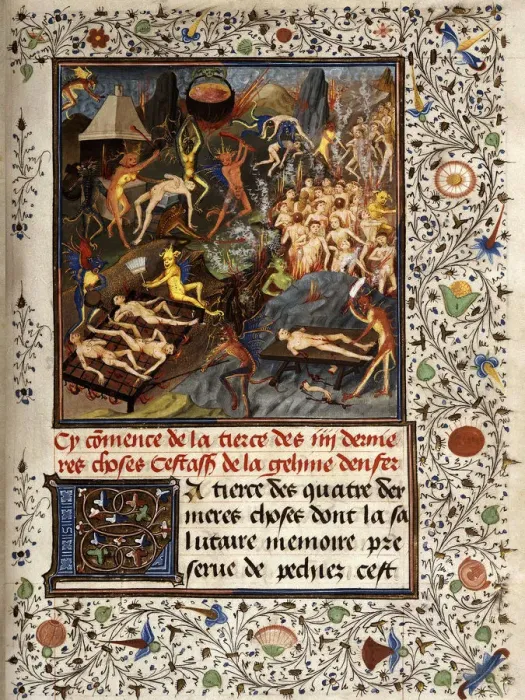 Cy cōmence de la tierce des iiij dernie
res choses Cestassͬ de la gehine denfer
La tierce des quatre der
nieres choses dont la sa
lutaire memoire pre
serue de pechiez cest